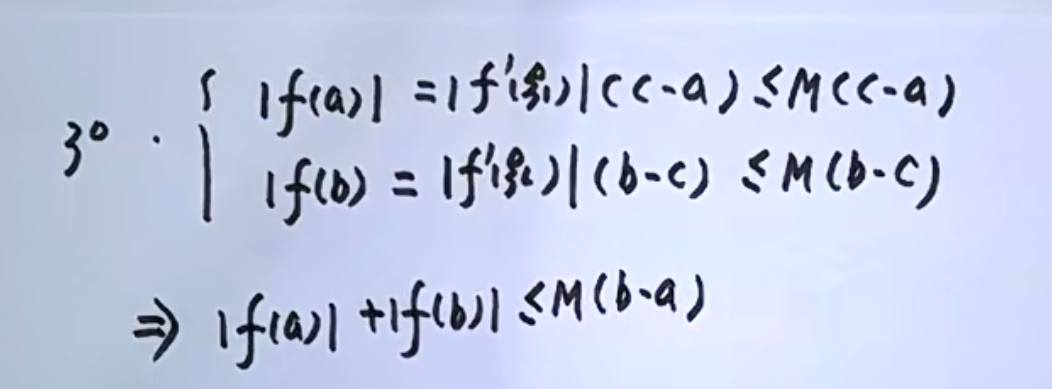 3° . { |f(a)| = |f'(ξ₁)|(c-a) ≤ M(c-a)
|f(b) = |f'(ξ₂)|(b-c) ≤ M(b-c)
⇒ |f(a)| + |f(b)| ≤ M(b-a)